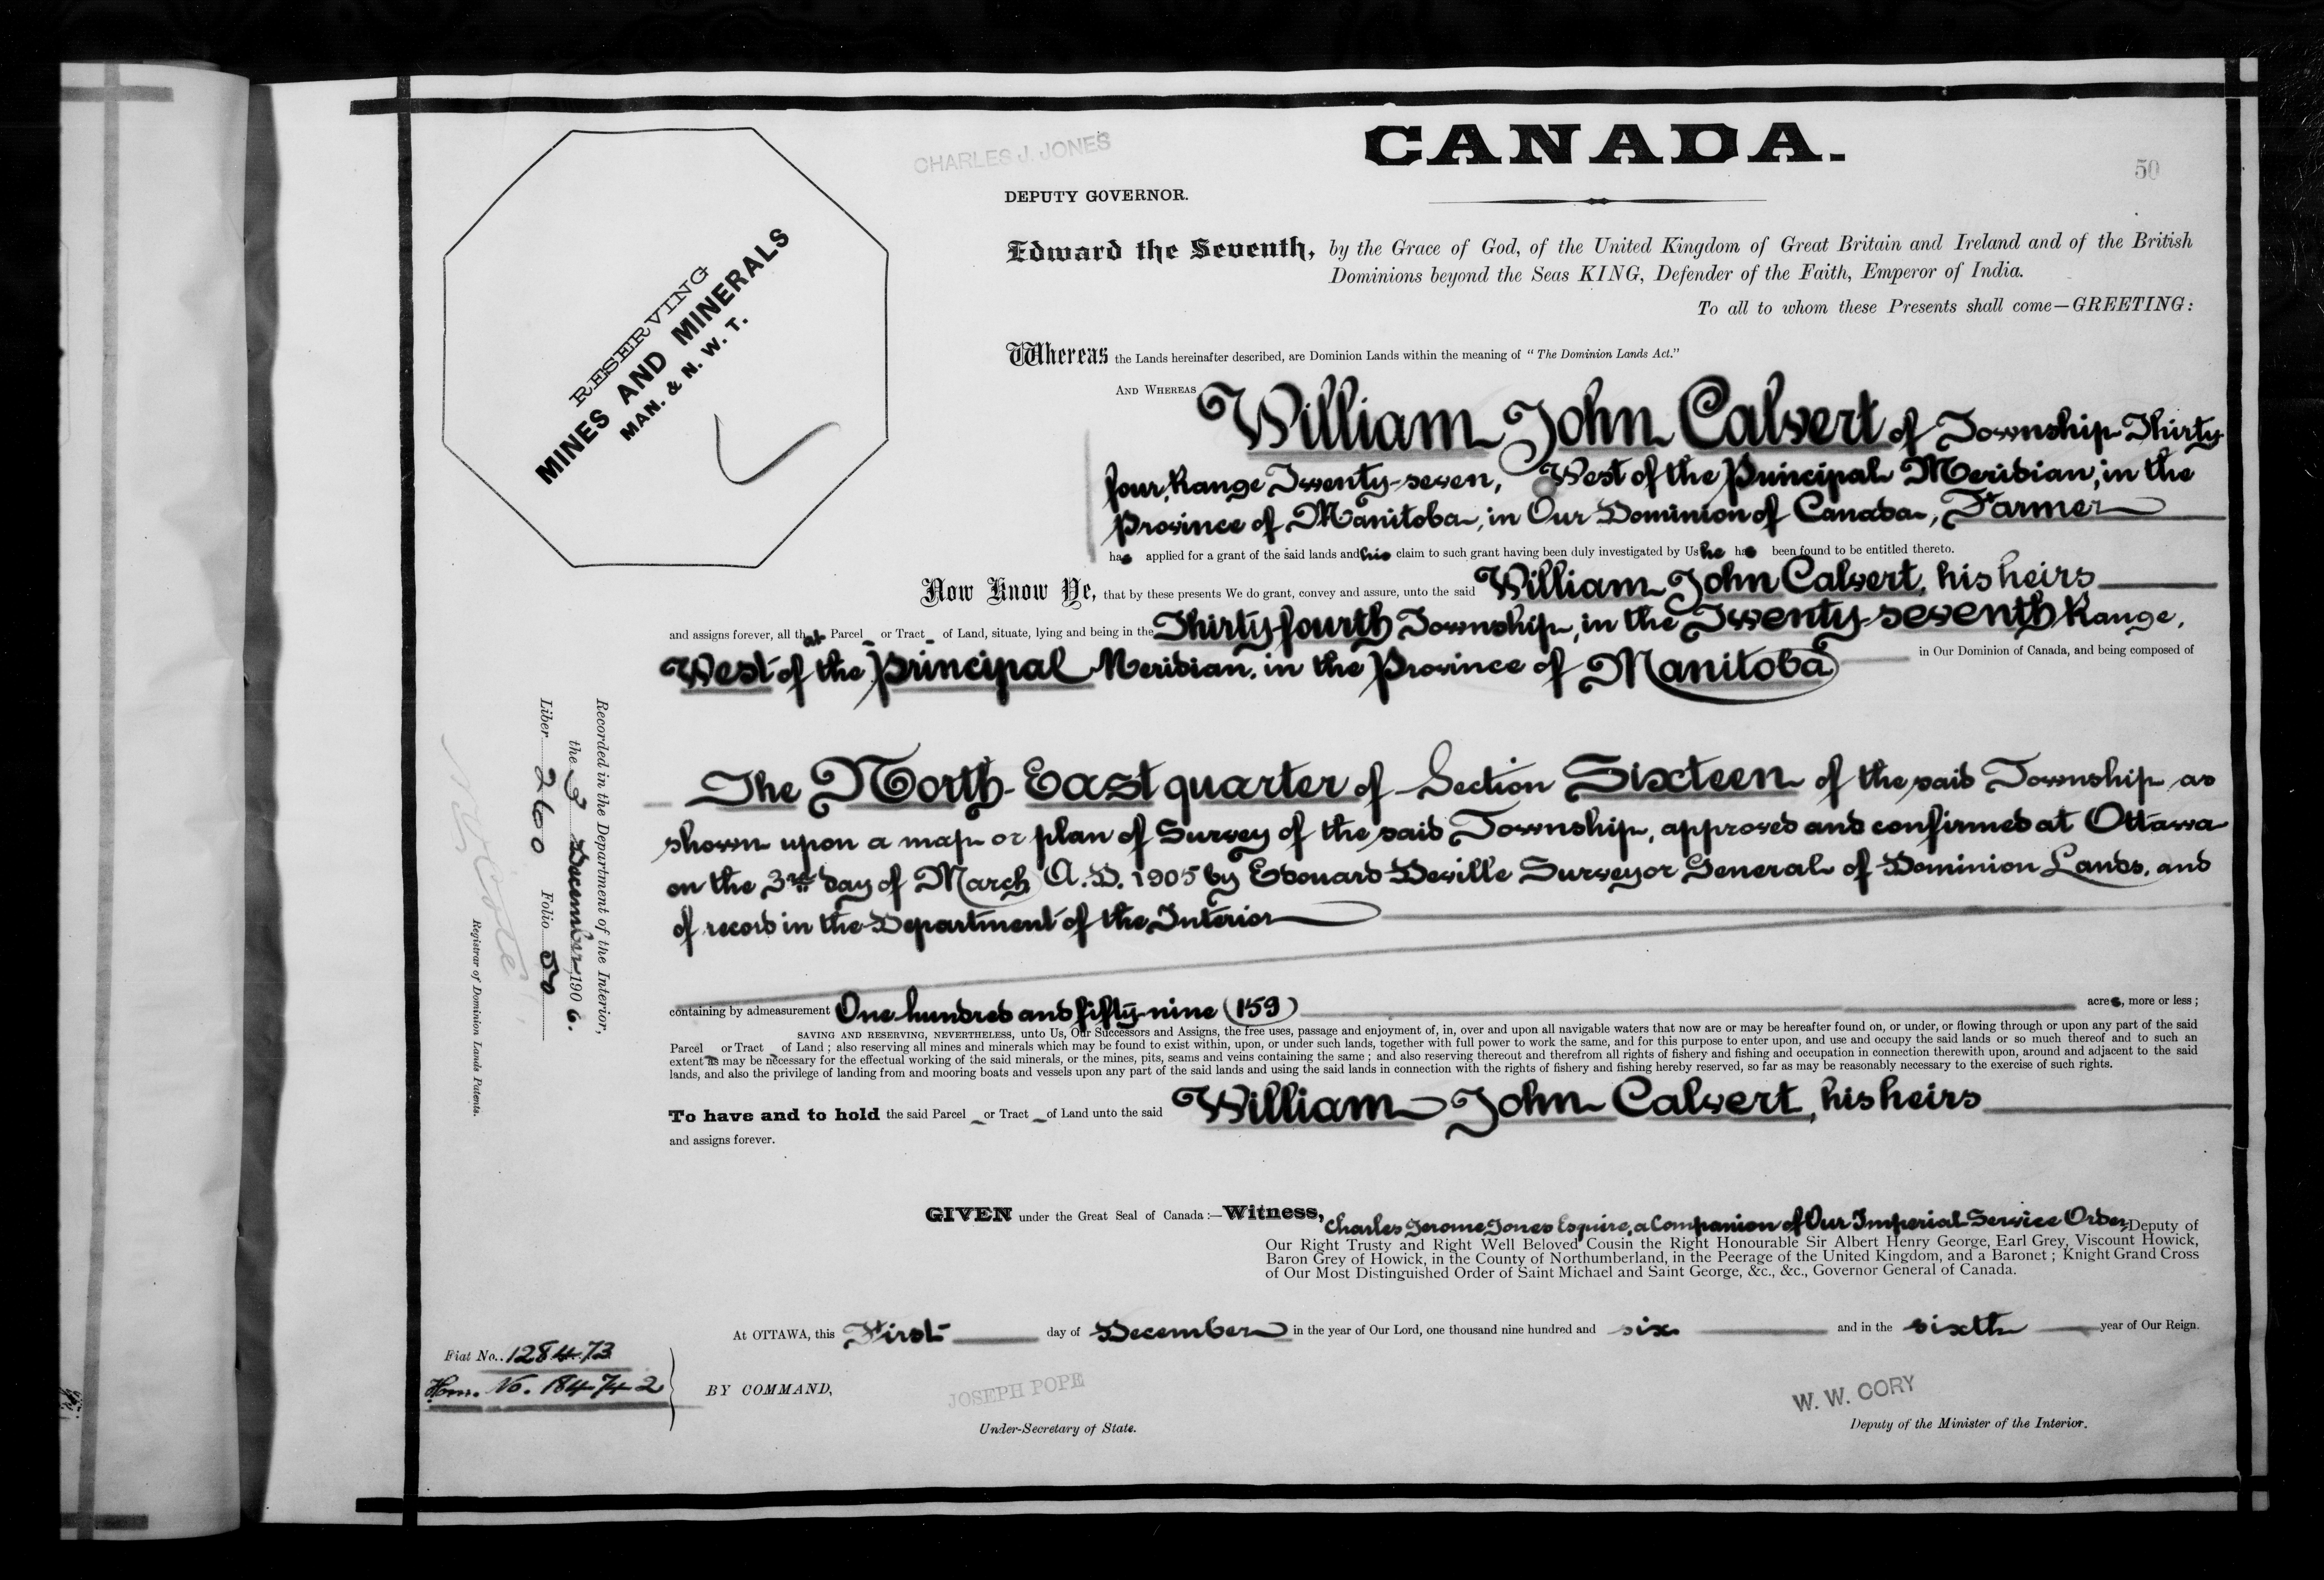 CHARLES J. JONES
CANADA.
50
DEPUTY GOVERNOR.
RESERVING
MINES AND MINERALS
MAN. & N. W. T.
Edward the Seventh, by the Grace of God, of the United Kingdom of Great Britain and Ireland and of the British
Dominions beyond the Seas KING, Defender of the Faith, Emperor of India.
To all to whom these Presents shall come—GREETING:
Whereas the Lands hereinafter described, are Dominion Lands within the meaning of "The Dominion Lands Act."
AND WHEREAS William John Calvert of Township Thirty
four, Range Twenty-seven, West of the Principal Meridian, in the
Province of Manitoba, in Our Dominion of Canada, Farmer
has applied for a grant of the said lands and his claim to such grant having been duly investigated by Us he has been found to be entitled thereto.
Now Know Ye, that by these presents We do grant, convey and assure, unto the said William John Calvert, his heirs
and assigns forever, all that Parcel or Tract of Land, situate, lying and being in the Thirty-fourth Township, in the Twenty-seventh Range,
West of the Principal Meridian, in the Province of Manitoba in Our Dominion of Canada, and being composed of
The North-East quarter of Section Sixteen of the said Township as
shown upon a map or plan of Survey of the said Township, approved and confirmed at Ottawa
on the 3rd day of March A.D. 1905 by Edouard Deville Surveyor General of Dominion Lands, and
of record in the Department of the Interior
containing by admeasurement One hundred and fifty-nine (159) acres, more or less;
SAVING AND RESERVING, NEVERTHELESS, unto Us, Our Successors and Assigns, the free uses, passage and enjoyment of, in, over and upon all navigable waters that now are or may be hereafter found on, or under, or flowing through or upon any part of the said
Parcel or Tract of Land; also reserving all mines and minerals which may be found to exist within, upon, or under such lands, together with full power to work the same, and for this purpose to enter upon, and use and occupy the said lands or so much thereof and to such an
extent as may be necessary for the effectual working of the said minerals, or the mines, pits, seams and veins containing the same; and also reserving thereout and therefrom all rights of fishery and fishing and occupation in connection therewith upon, around and adjacent to the said
lands, and also the privilege of landing from and mooring boats and vessels upon any part of the said lands and using the said lands in connection with the rights of fishery and fishing hereby reserved, so far as may be reasonably necessary to the exercise of such rights.
To have and to hold the said Parcel or Tract of Land unto the said William John Calvert, his heirs
and assigns forever.
Recorded in the Department of the Interior,
the 3 December 1906.
Liber 260 Folio 50
Registrar of Dominion Lands Patents.
GIVEN under the Great Seal of Canada:—Witness, Charles Jerome Jones Esquire, a Companion of Our Imperial Service Order, Deputy of
Our Right Trusty and Right Well Beloved Cousin the Right Honourable Sir Albert Henry George, Earl Grey, Viscount Howick,
Baron Grey of Howick, in the County of Northumberland, in the Peerage of the United Kingdom, and a Baronet; Knight Grand Cross
of Our Most Distinguished Order of Saint Michael and Saint George, &c., &c., Governor General of Canada.
At OTTAWA, this First day of December in the year of Our Lord, one thousand nine hundred and six and in the sixth year of Our Reign.
Fiat No. 128473
Hom. No. 184742
BY COMMAND,
JOSEPH POPE
Under-Secretary of State.
W. W. CORY
Deputy of the Minister of the Interior.